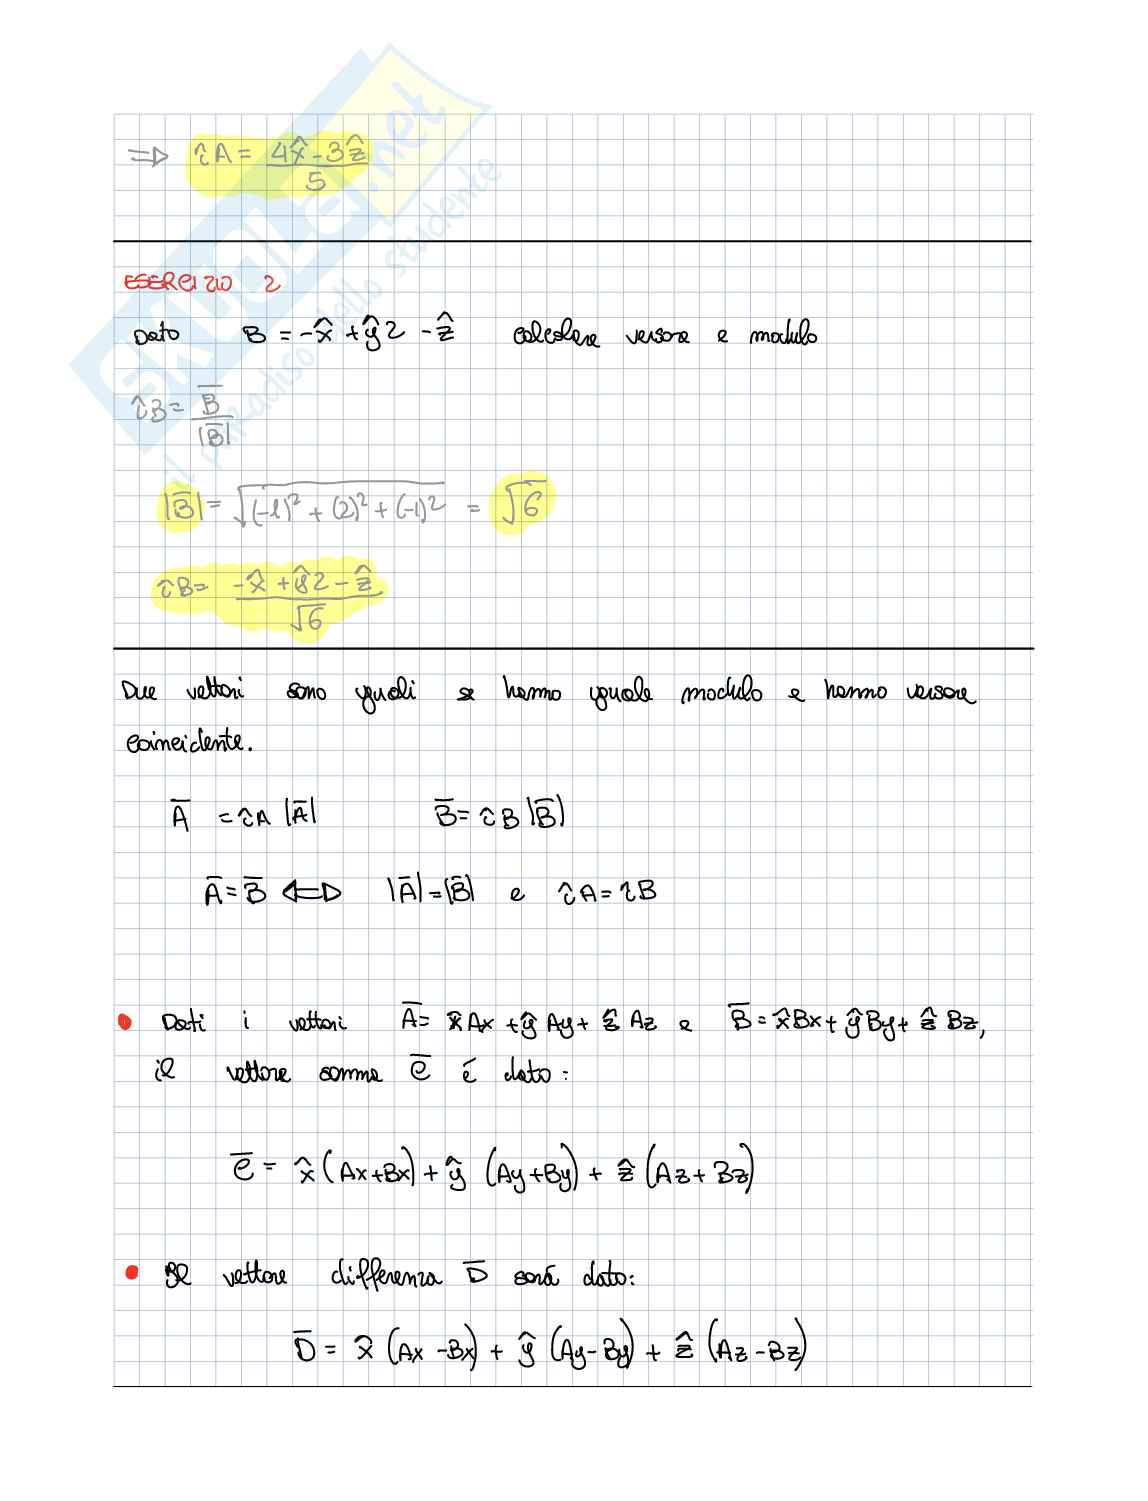 ⇒ îA = 4x̂ - 3ẑ / 5
SKUOLA.net
il paradiso dello studente
ESERCIZIO 2
Dato B = -x̂ + ŷ2 - ẑ calcolare versore e modulo
îB = B̅ / |B̅|
|B̅| = √((-1)² + (2)² + (-1)²) = √6
îB = -x̂ + ŷ2 - ẑ / √6
Due vettori sono uguali se hanno uguale modulo e hanno versore
coincidente.
A̅ = îA |A̅| B̅ = îB |B̅|
A̅ = B̅ ⇔ |A̅| = |B̅| e îA = îB
• Dati i vettori A̅ = x̂Ax + ŷAy + ẑAz e B̅ = x̂Bx + ŷBy + ẑBz,
il vettore somma C̅ é dato:
C̅ = x̂(Ax+Bx) + ŷ(Ay+By) + ẑ(Az+Bz)
• Il vettore differenza D̅ sará dato:
D̅ = x̂(Ax-Bx) + ŷ(Ay-By) + ẑ(Az-Bz)